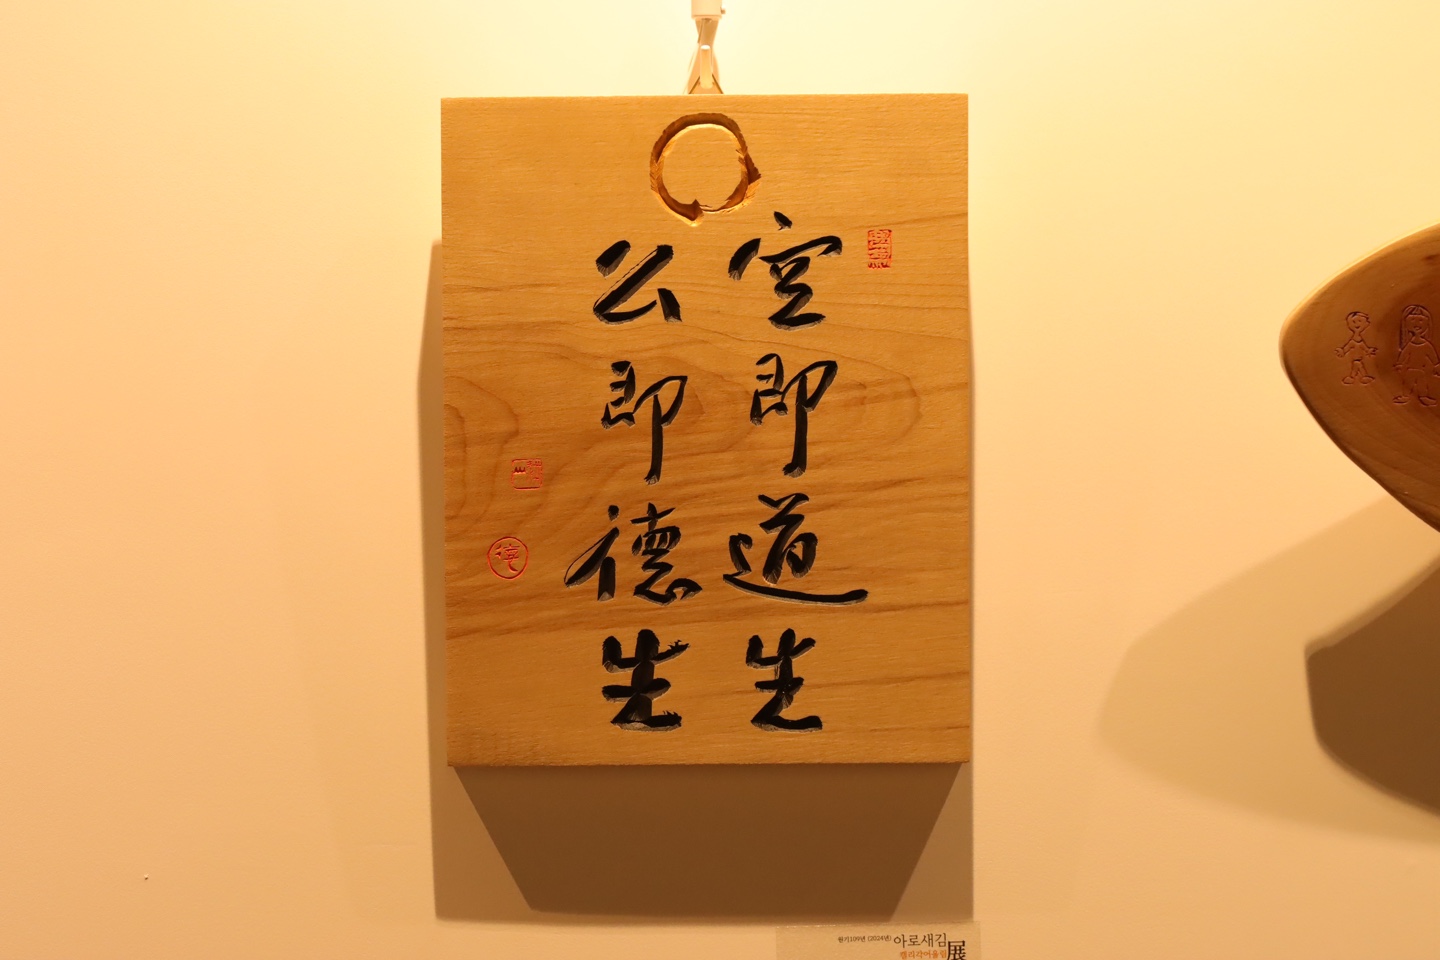 空即道生
公即德生
원기109년 (2024년) 아로새김展
캘리각어울림